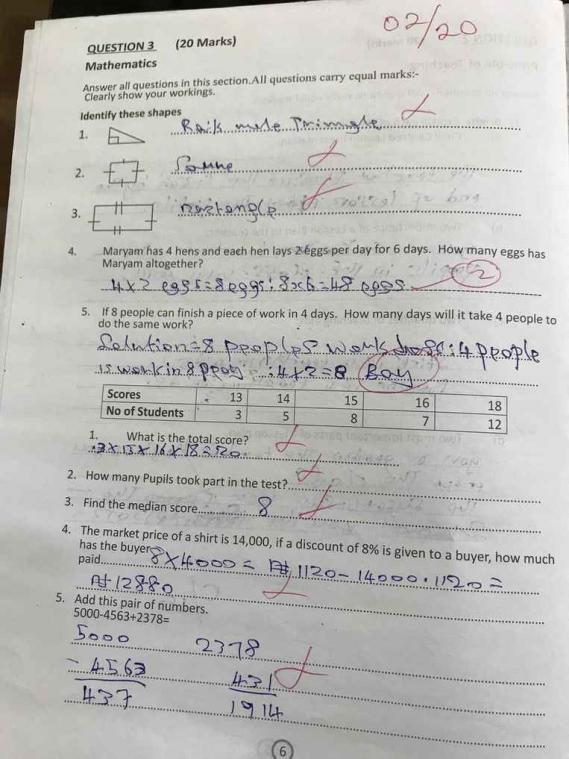 02/20
QUESTION 3 (20 Marks)
Mathematics
Answer all questions in this section.All questions carry equal marks:-
Clearly show your workings.
Identify these shapes
1. Raik mole Trimngle
2.
3. rectengle
4. Maryam has 4 hens and each hen lays 2 eggs per day for 6 days. How many eggs has
Maryam altogether?
4x2 eggs=8eggs:8x6=48 eggs 2
5. If 8 people can finish a piece of work in 4 days. How many days will it take 4 people to
do the same work?
Solution=8 peoples work :4 people
is work in 8 :4x2=8 Bay
Scores 13 14 15 16 18
No of Students 3 5 8 7 12
1. What is the total score?
3x15x16x18=20
2. How many Pupils took part in the test?
3. Find the median score 8
4. The market price of a shirt is 14,000, if a discount of 8% is given to a buyer, how much
has the buyer
paid 8x4000= ₦1120-14000.1120=
₦12880
5. Add this pair of numbers.
5000-4563+2378=
5000 2378
-4563 431
437 1914
6